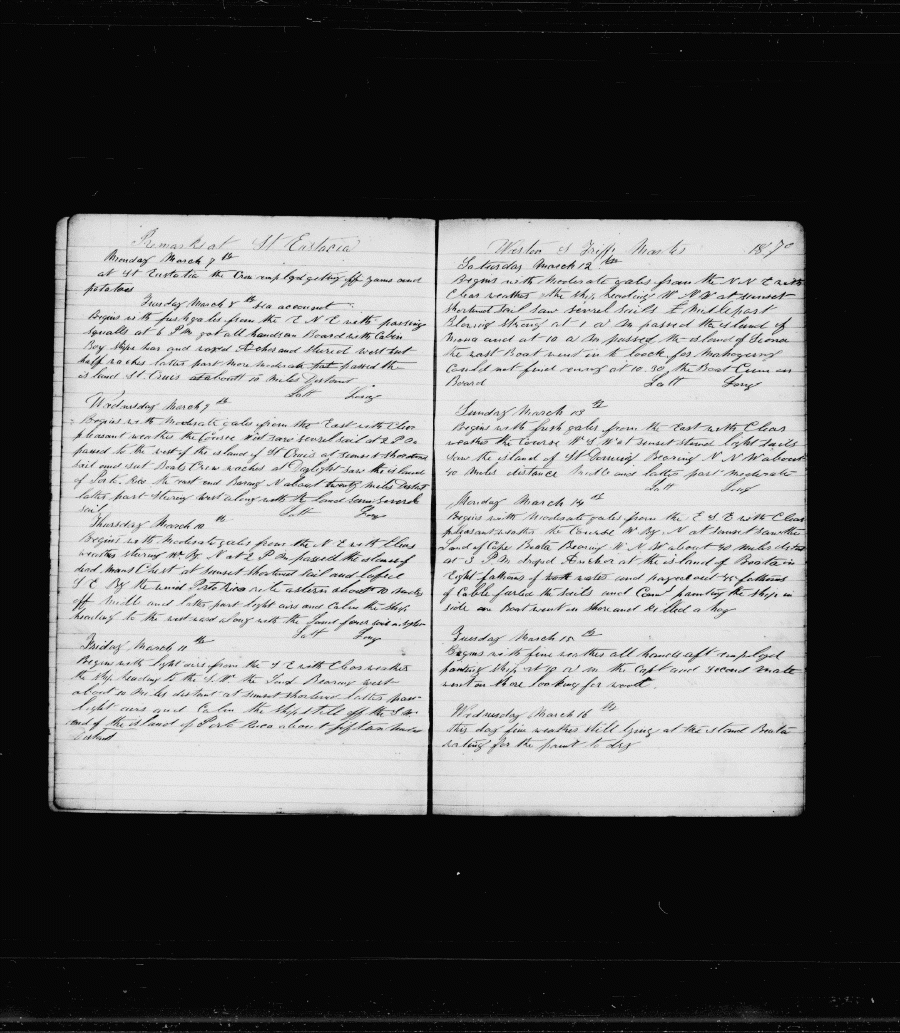 Remarks at St Eustacia
Monday March 7th
at St Eustatia the Crew employd geting off yams and
potatoes
Tuesday March 8th Sea account
Begins with fresh gales from the E N E with passing
Squalls at 6 P M got all hands on Board with Cabin
Boy and raised Anchor and stured west but
half raches latter part more moderate passed the
island St Cruis at about 10 miles Distand
Latt Long
Wednesday March 9th
Begins with Moderate gales from the East with Clear
pleasant weather the Course West saw sevrel sail at 2 P M
passed to the west of the island of St Cruis at sunset shortened
sail and set Boats Crew waches at Daylight saw the island
of Porto Rico the west end Baring N about twenty miles Distant
latter part Stering west along with the land seen severel
sail Latt Long
Thursday March 10th
Begins with Moderate gales from the N E with Clear
weather stering W By N at 2 P M passed the island of
dead Mans Chest at Sunset shortened sail and
S E By the wind Porto Rico lite astern about 10 miles
off Middle and latter part light airs and Calm the Ship
heading to the west ward along with the land
Latt Long
Friday March 11th
Begins with light airs from the S E with Clear weather
the ship heading to the S W the land Bearing west
about 10 miles distant at sunset shortened latter part
light airs and Calm the ship still off the S W
end of the island of Porto Rico about fifteen miles
distant
Weston S Tripp Master 1870
Saturday March 12th
Begins with Moderate gales from the N N E with
Clear weather the ship heading W N W at sunset
shortened sail saw sevrel sails Middle part
Bloring strong at 1 a m passed the island of
Mona and at 10 a m passed the island of Seona
the wast Boat went in to look for Mahogeny
Could not find eny at 10.30 the Boat Cum on
Board Latt Long
Sunday March 13th
Begins with fresh gales from the East with Clear
weather the Course W S W at sunset stowed light sails
Saw the island of St Doming Bearing N N W about
40 Miles distance Middle and latter part moderate
Latt Long
Monday March 14th
Begins with Moderate gales from the E S E with Clear
pleasant weather the Course W By N at sunset saw the
Land of Cape Beata Bearing W N W about 40 miles distan
at 3 P M droped Anchor at the island of Beata in
Eight fathoms of water and payed out 45 fathoms
of Cable furled the sails and Comd painting the ship in
side a Boat went on shore and killed a hog
Tuesday March 15th
Begins with fine weather all hands aft employd
painting ship at 8 a m the Capt and second mate
went on shore looking for wood
Wednesday March 16th
this day fine weather still lying at the island Beata
wating for the paint to dry